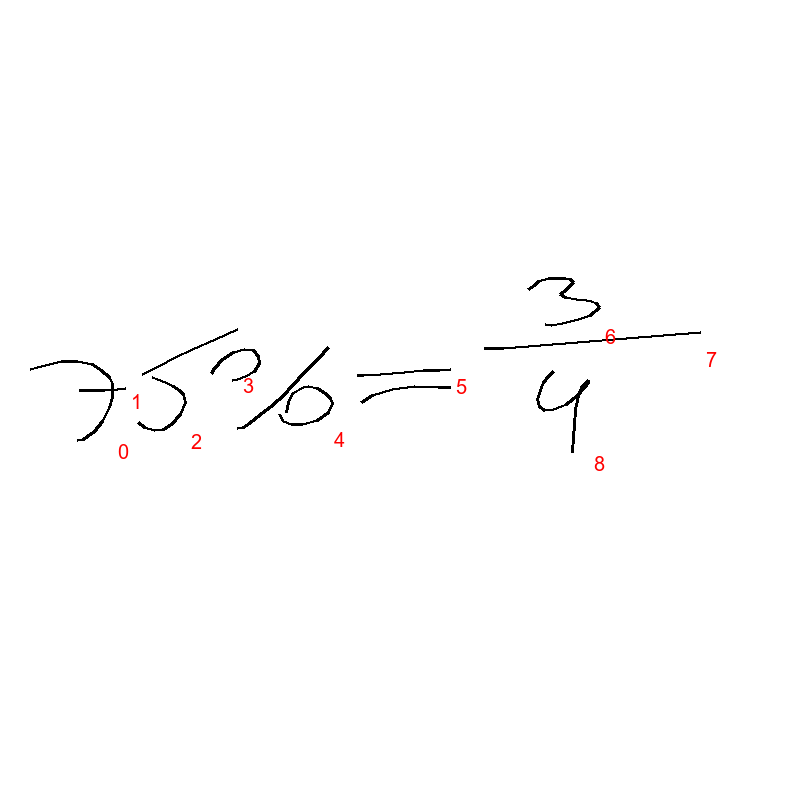 75% = 3/4
0 1 2 3 4 5 6 7 8